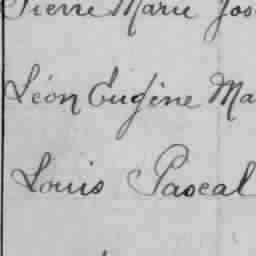 Pierre Marie Jos
Léon Eugène Ma
Louis Pascal